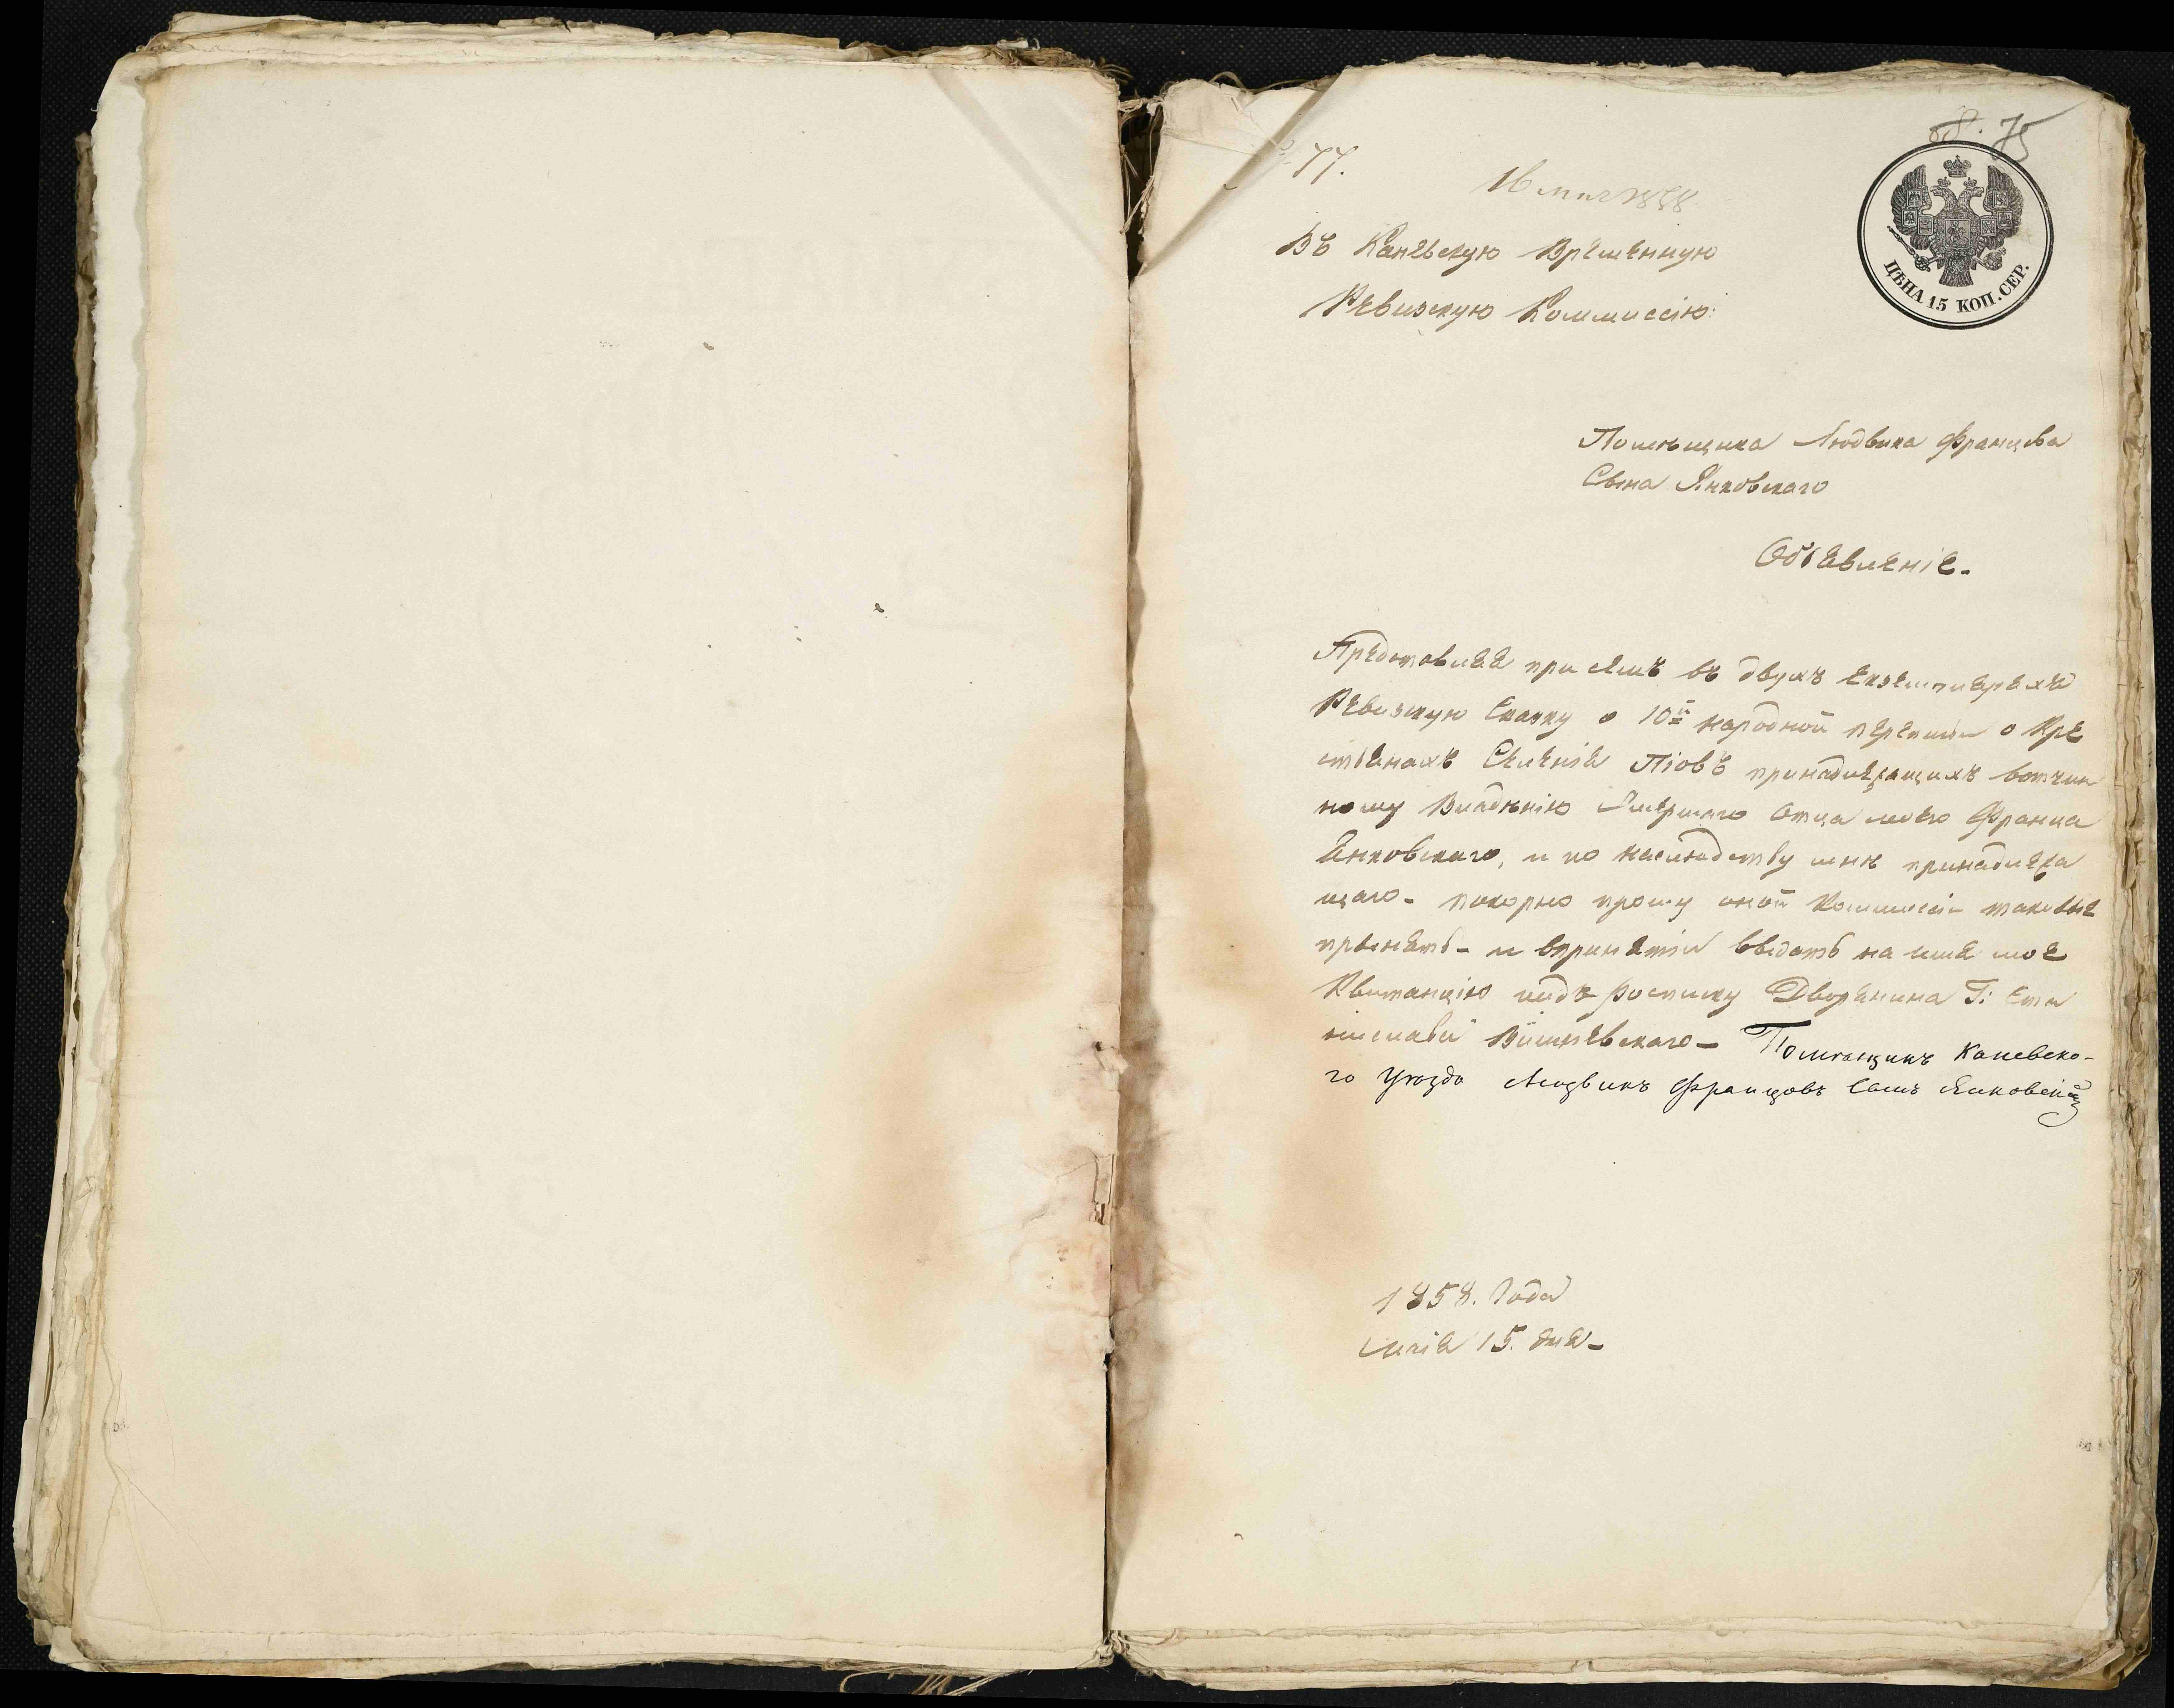 68. 75
№ 77.
16 мая 1858
ЦѢНА 15 КОП. СЕР.
Въ Каневскую Временную
Ревизкую Коммиссію:
Помѣщика Людвика Францова
Сына Янковскаго
Объявленіе.
Представляя при семъ въ двухъ Екземплярахъ
Ревизкую Сказку о 10й народной переписи о Кре
стьянахъ Селенія Піовъ принадлежащихъ вотчин
ному Владѣнію Умершаго Отца моего Франца
Янковскаго, и по наслѣдству мнѣ принадлежа
щаго - покорно прошу оной Коммиссіи таковые
прынять - и впринятіи выдать на имя мое
Квитанцію подъ росписку Дворянина Г: Ста
нислава Вишневскаго - Помѣщикъ Каневско-
го Уѣзда Людвикъ Францовъ Сынъ Янковскій
1858. Года
Маія 15. дня -